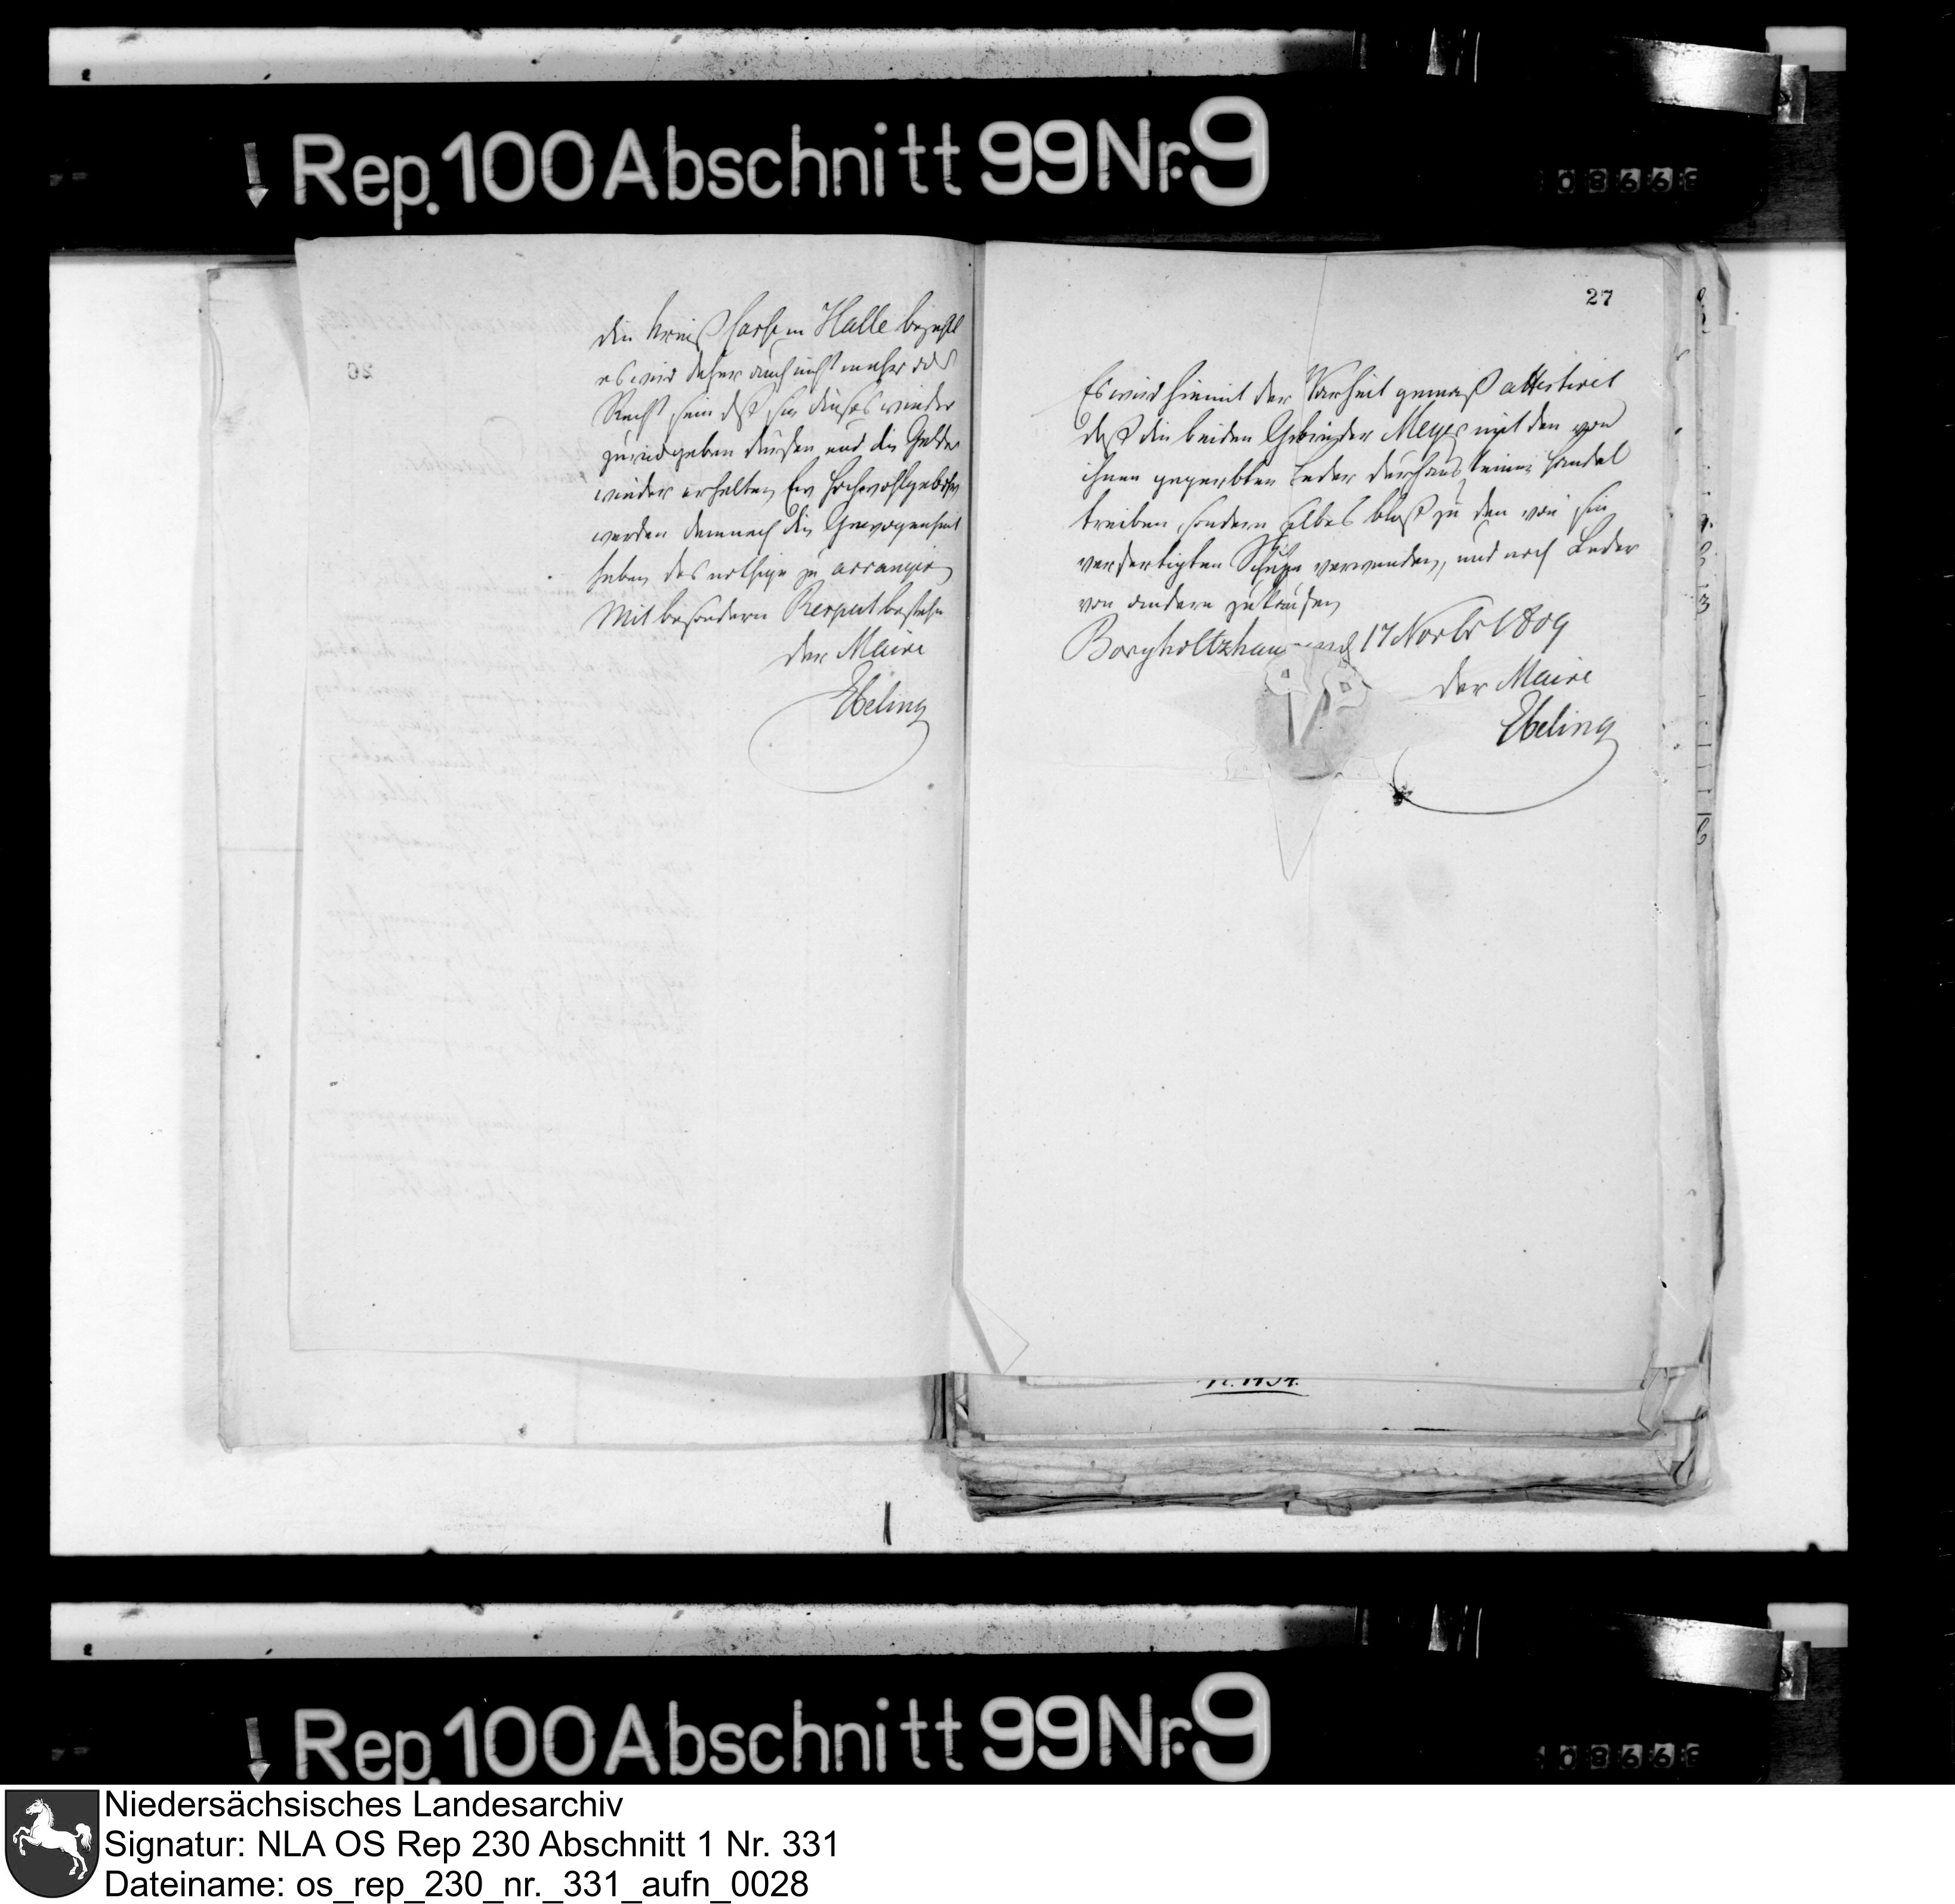 Rep. 100 Abschnitt 99 Nr. 9
die Kreiß Casse in Halle bezahlt
es wird daher auch nicht mehr als
Recht sein daß sie dieses wieder
zurückgeben dürfen und die Gelder
wieder erhalten, Ew Hochwohlgebohr
werden demnach die Gewogenheit
haben das nothige zu arrangiren
Mit besondern Respect bestehe
der Maire
Ebeling
27
Es wird hiemit der Warheit gemäß attestiret
daß die beiden Gebrüder Meyer mit den von
ihnen gegerbten Leder durchaus keinen Handel
treiben, sondern selbes bloß zu den von sie
verfertigten Schuhe verwenden, und noch Leder
von andern zukaufen
Borgholtzhausen d 17 Novbr 1809
der Maire
Ebeling
Rep. 100 Abschnitt 99 Nr. 9
Niedersächsisches Landesarchiv
Signatur: NLA OS Rep 230 Abschnitt 1 Nr. 331
Dateiname: os_rep_230_nr._331_aufn_0028